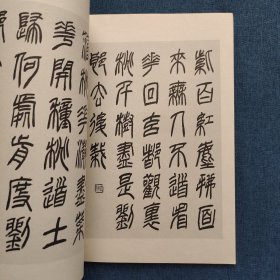 紫陌紅塵拂面
來無人不道看
花回玄都觀裏
桃千樹盡是劉
郎去後栽
桃花淨盡菜
花開種桃道士
歸何處前度劉